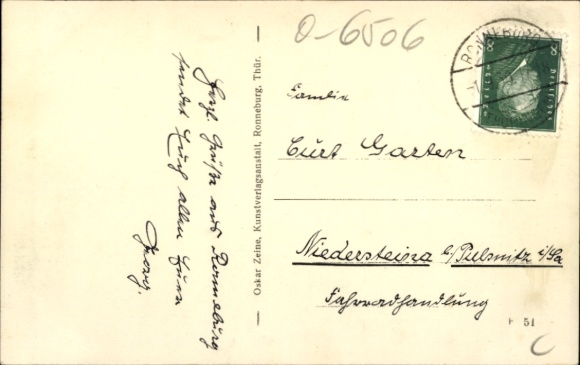 O-6506
RONNEBURG
8 8
Familie
Curt Garten
Niedersteina b/Pulsnitz i/Sa
Fahrradhandlung
Oskar Zeine, Kunstverlagsanstalt, Ronneburg, Thür.
Herzl. Grüße aus Ronneburg
sendet Euch allen Euer
Georg.
51